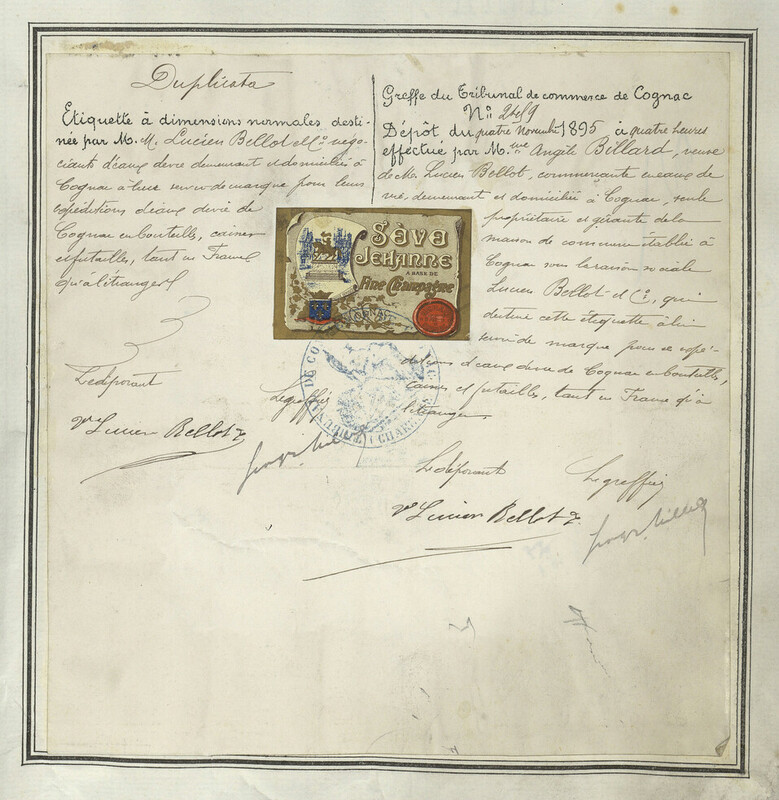 Duplicata
Etiquette à dimensions normales desti-
née par M. M. Lucien Bellot et Co négo-
ciants d'eaux de vie demeurant et domiciliés à
Cognac à leur servir de marque pour leurs
expéditions d'eaux de vie de
Cognac en bouteilles, caisses
et futailles, tant en France
qu'à l'étranger
Le déposant
Le greffier
Ve Lucien Bellot
Greffe du Tribunal de commerce de Cognac
No 2489
Dépôt du quatre Novembre 1895 à quatre heures
effectué par Mme Angèle Billard, veuve
de Mr Lucien Bellot, commerçante en eaux de
vie, demeurant et domiciliée à Cognac, seule
propriétaire et gérante de la
maison de commerce établie à
Cognac sous la raison sociale
Lucien Bellot et Co, qui
destine cette étiquette à lui
servir de marque pour ses expé-
ditions d'eaux de vie de Cognac en bouteilles,
caisses et futailles, tant en France qu'à
l'étranger.
Le déposant
Le greffier
Ve Lucien Bellot
Sève
Jehanne
A BASE DE
Fine Champagne
COGNAC